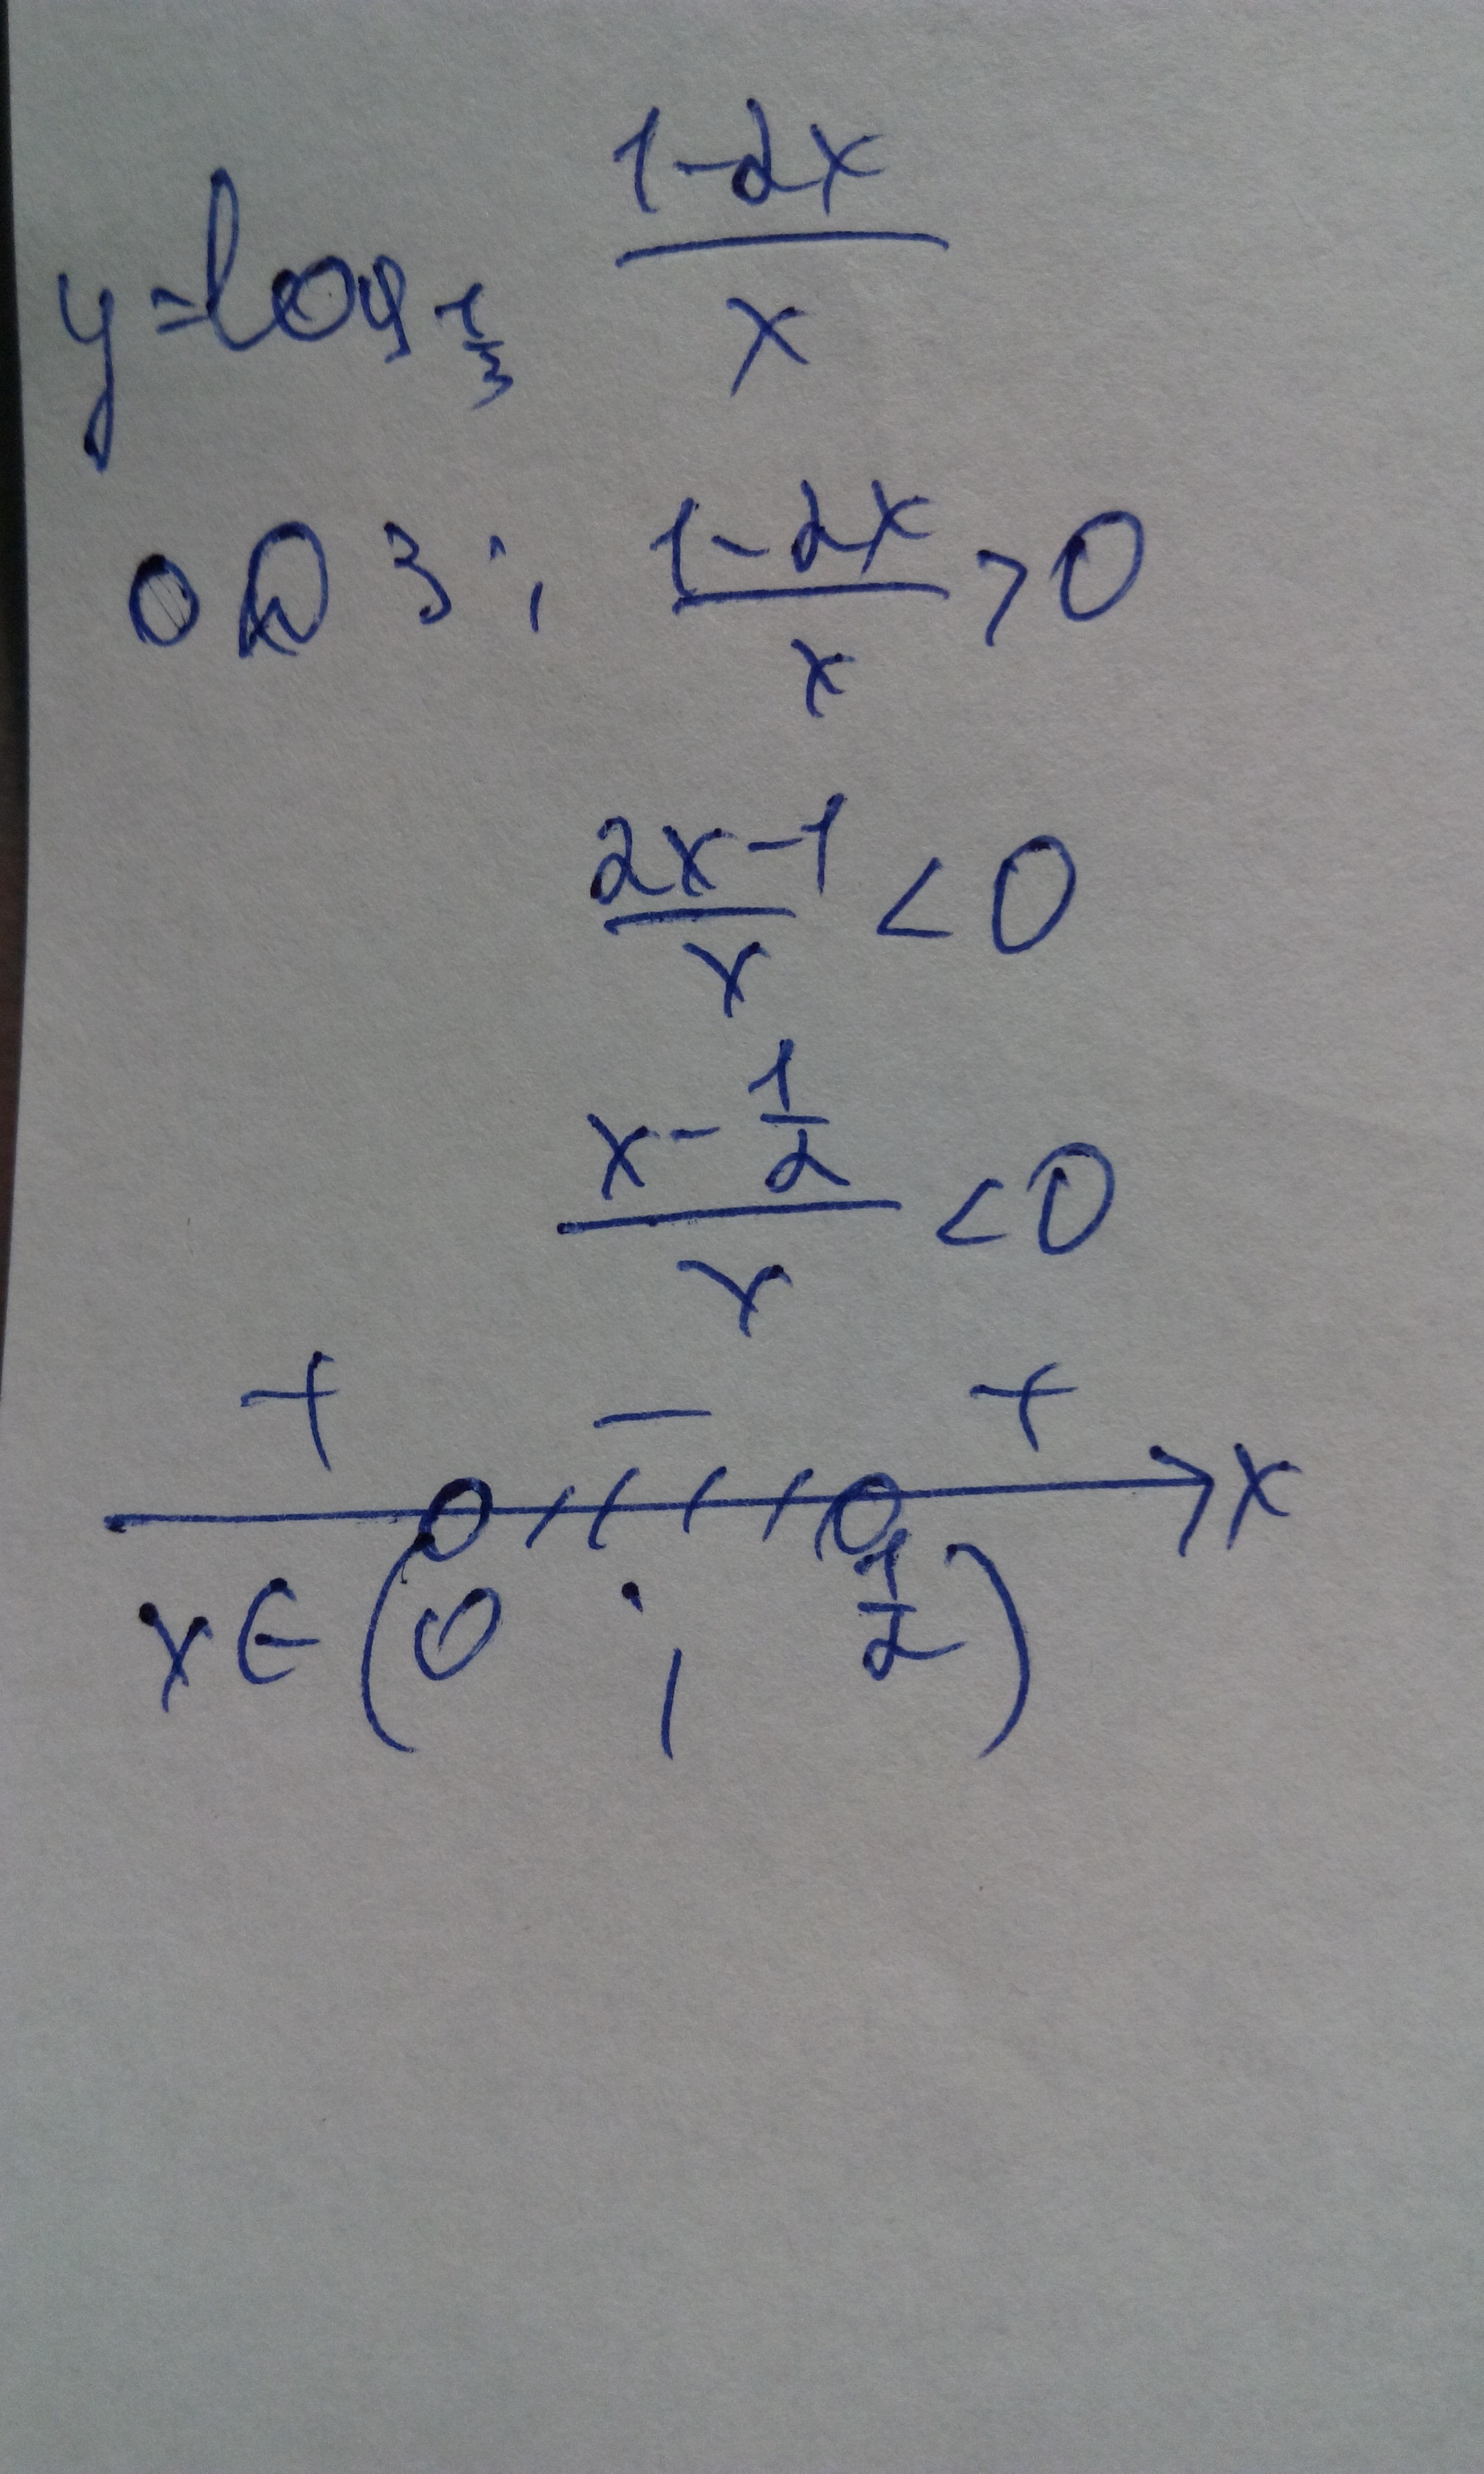 y=log 1/3 (1-2x)/x
ОДЗ: (1-2x)/x >0
(2x-1)/x <0
(x-1/2)/x <0
+ − +
x
x∈(0 ; 1/2)